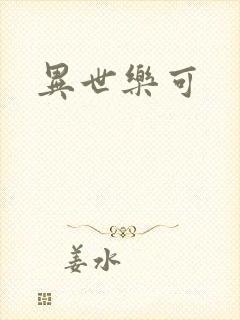 異世樂可
姜水